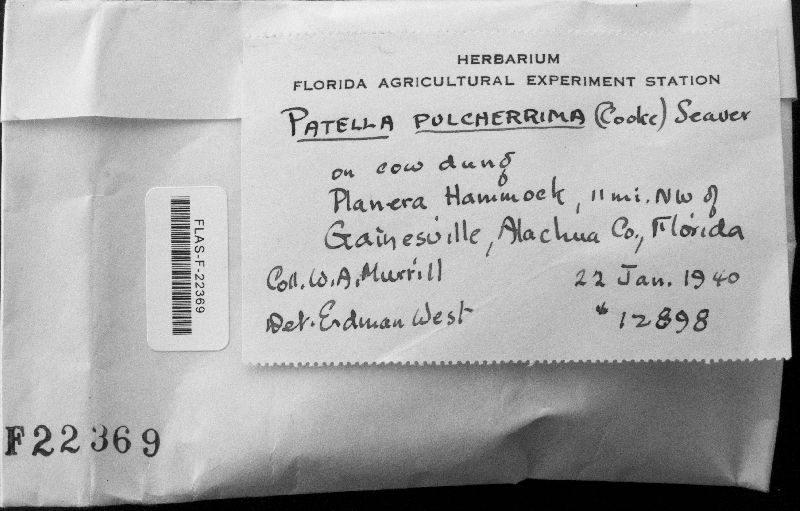 HERBARIUM
FLORIDA AGRICULTURAL EXPERIMENT STATION
PATELLA PULCHERRIMA (Cooke) Seaver
on cow dung
Planera Hammock, 11 mi. NW of
Gainesville, Alachua Co., Florida
Coll. W. A. Murrill 22 Jan. 1940
Det. Erdman West # 12898
FLAS-F-22369
F22369